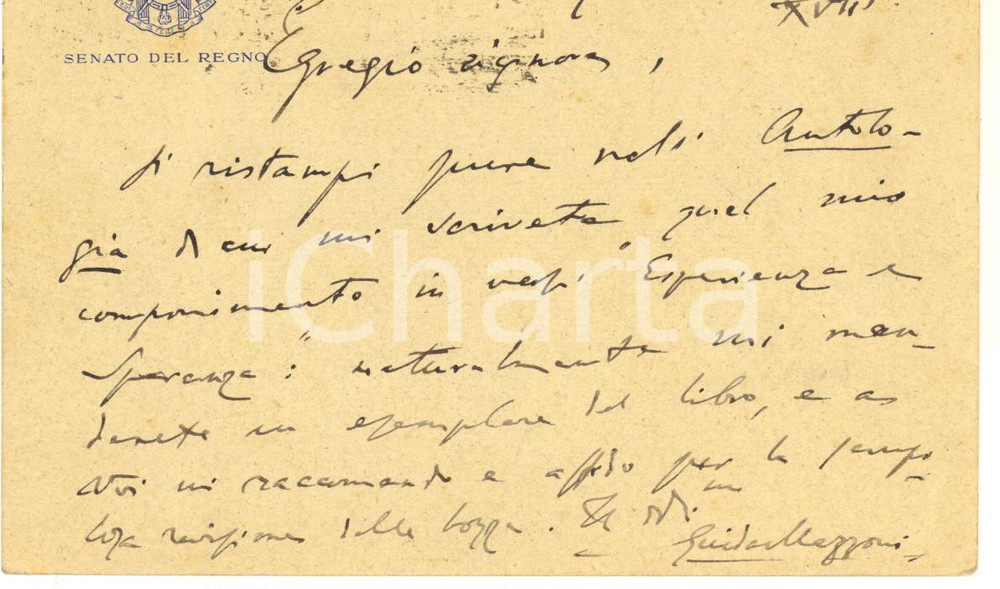 XVII
SENATO DEL REGNO
Egregio signore,
Si ristampi pure nell' Antolo-
gia di cui mi scrivete quel mio
componimento in versi "Esperienza e
Speranza": naturalmente mi man-
derete un esemplare del libro, e a
Voi mi raccomando e affido per la scrupo-
losa revisione delle bozze.
Guido Mazzoni
iCharta